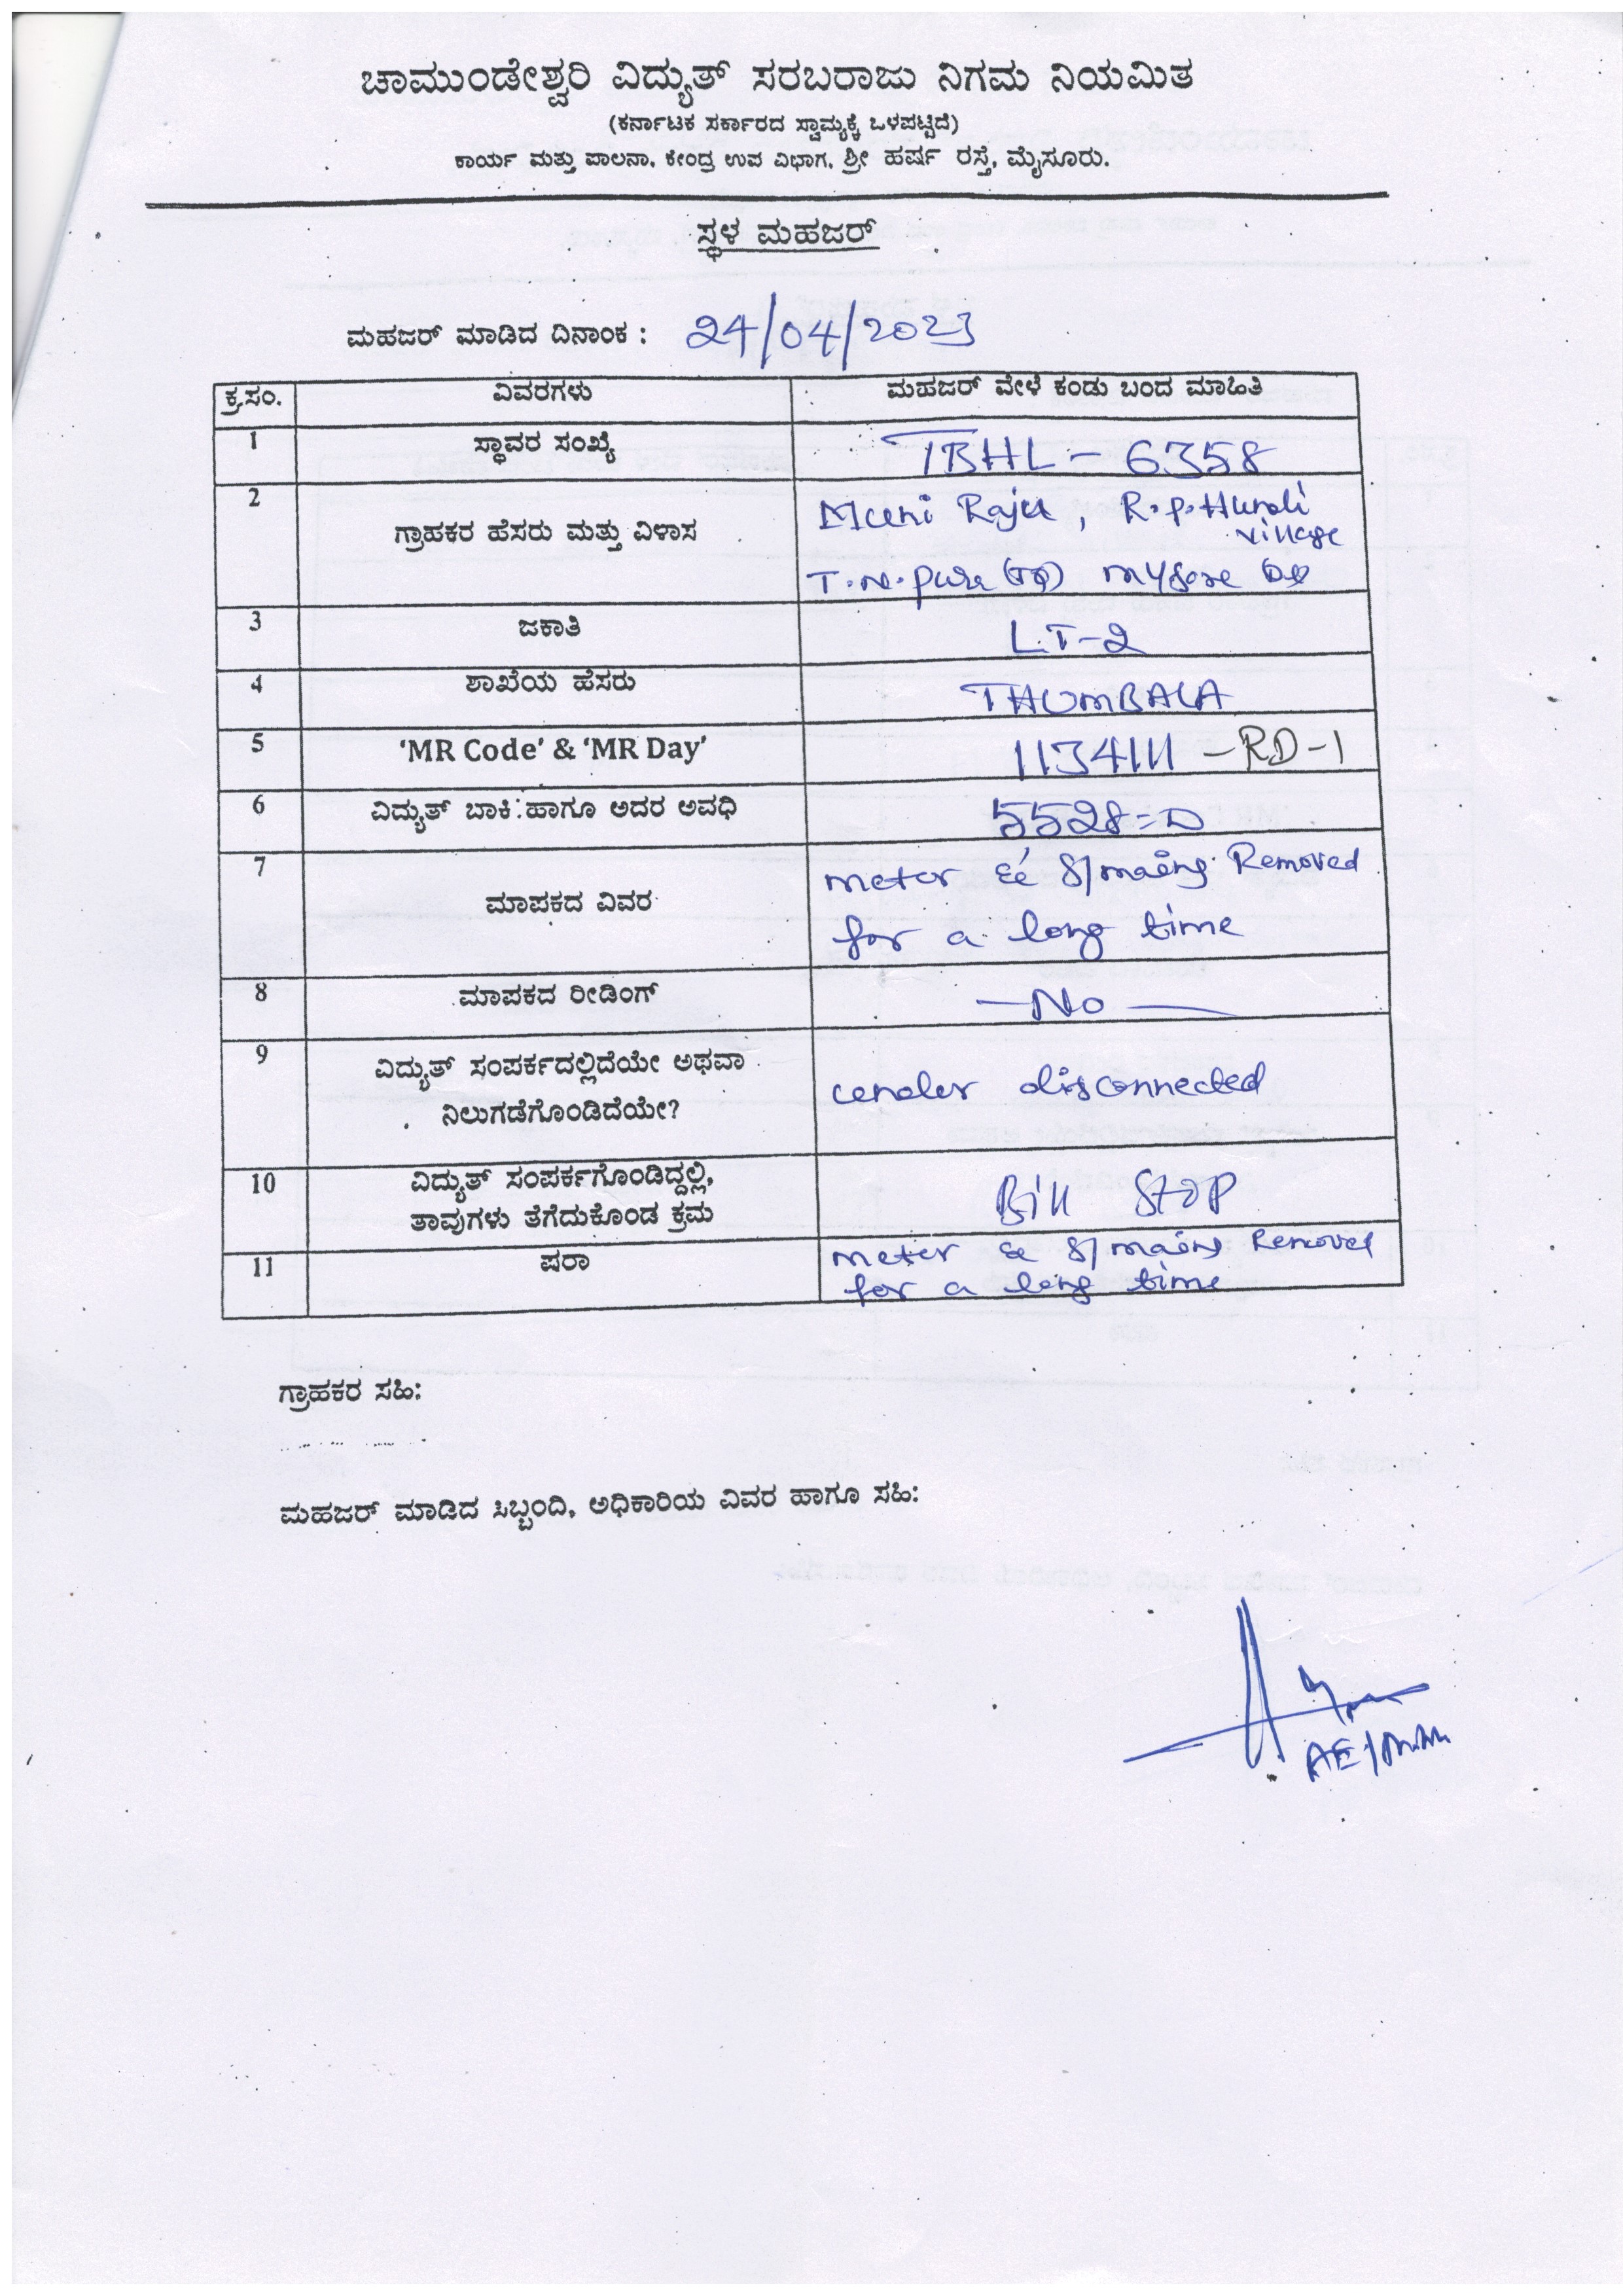 ಚಾಮುಂಡೇಶ್ವರಿ ವಿದ್ಯುತ್ ಸರಬರಾಜು ನಿಗಮ ನಿಯಮಿತ
(ಕರ್ನಾಟಕ ಸರ್ಕಾರದ ಸ್ವಾಮ್ಯಕ್ಕೆ ಒಳಪಟ್ಟಿದೆ)
ಕಾರ್ಯ ಮತ್ತು ಪಾಲನಾ, ಕೇಂದ್ರ ಉಪ ವಿಭಾಗ, ಶ್ರೀ ಹರ್ಷ ರಸ್ತೆ, ಮೈಸೂರು.
ಸ್ಥಳ ಮಹಜರ್
ಮಹಜರ್ ಮಾಡಿದ ದಿನಾಂಕ : 24/04/2023
ಕ್ರ.ಸಂ. ವಿವರಗಳು ಮಹಜರ್ ವೇಳೆ ಕಂಡು ಬಂದ ಮಾಹಿತಿ
1 ಸ್ಥಾವರ ಸಂಖ್ಯೆ TBHL - 6358
2 ಗ್ರಾಹಕರ ಹೆಸರು ಮತ್ತು ವಿಳಾಸ Muni Raju, R.P.Hundi
village
T.N.pura (TQ) mysore
3 ಜಕಾತಿ LT-2
4 ಶಾಖೆಯ ಹೆಸರು THUMBALA
5 'MR Code' & 'MR Day' 1134111 - RD-1
6 ವಿದ್ಯುತ್ ಬಾಕಿ ಹಾಗೂ ಅದರ ಅವಧಿ 5528=0
7 ಮಾಪಕದ ವಿವರ meter & S/mains Removed
for a long time
8 ಮಾಪಕದ ರೀಡಿಂಗ್ — No —
9 ವಿದ್ಯುತ್ ಸಂಪರ್ಕದಲ್ಲಿದೆಯೇ ಅಥವಾ
ನಿಲುಗಡೆಗೊಂಡಿದೆಯೇ? under disconnected
10 ವಿದ್ಯುತ್ ಸಂಪರ್ಕಗೊಂಡಿದ್ದಲ್ಲಿ,
ತಾವುಗಳು ತೆಗೆದುಕೊಂಡ ಕ್ರಮ Bill STOP
11 ಷರಾ meter & S/mains Removed
for a long time
ಗ್ರಾಹಕರ ಸಹಿ:
ಮಹಜರ್ ಮಾಡಿದ ಸಿಬ್ಬಂದಿ, ಅಧಿಕಾರಿಯ ವಿವರ ಹಾಗೂ ಸಹಿ: